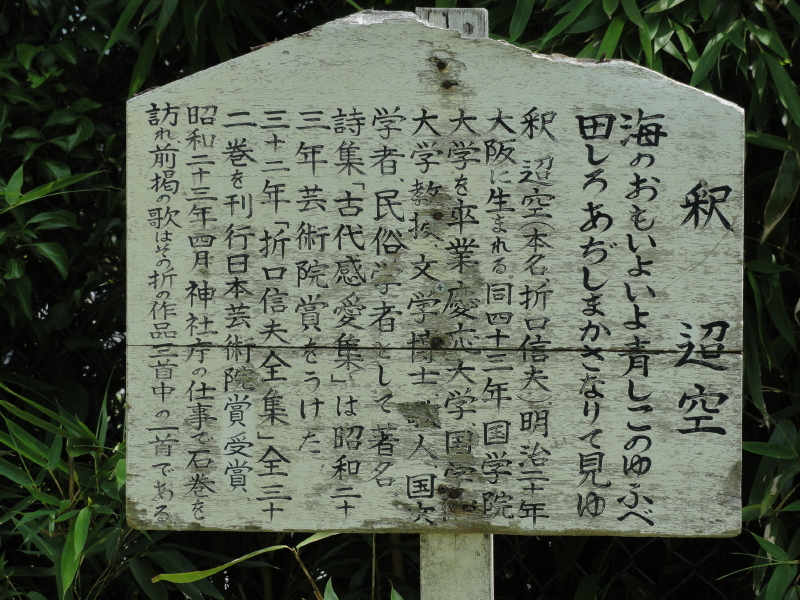 釈 迢空
海のおもいよいよ青しこのゆふべ
田しろあぢしまかさなりて見ゆ
釈 迢空(本名、折口信夫)明治二十年
大阪に生まれる。同四十三年国学院
大学を卒業、慶応大学、国学
大学教授、文学博士、人、国
学者、民俗学者として著名
詩集「古代感愛集」は昭和二十
三年芸術院賞をうけた
三十二年「折口信夫全集」全三十
二巻を刊行日本芸術院賞受賞、
昭和二十三年四月、神社庁の仕事で石巻を
訪れ前掲の歌はその折の作品三首中の一首である